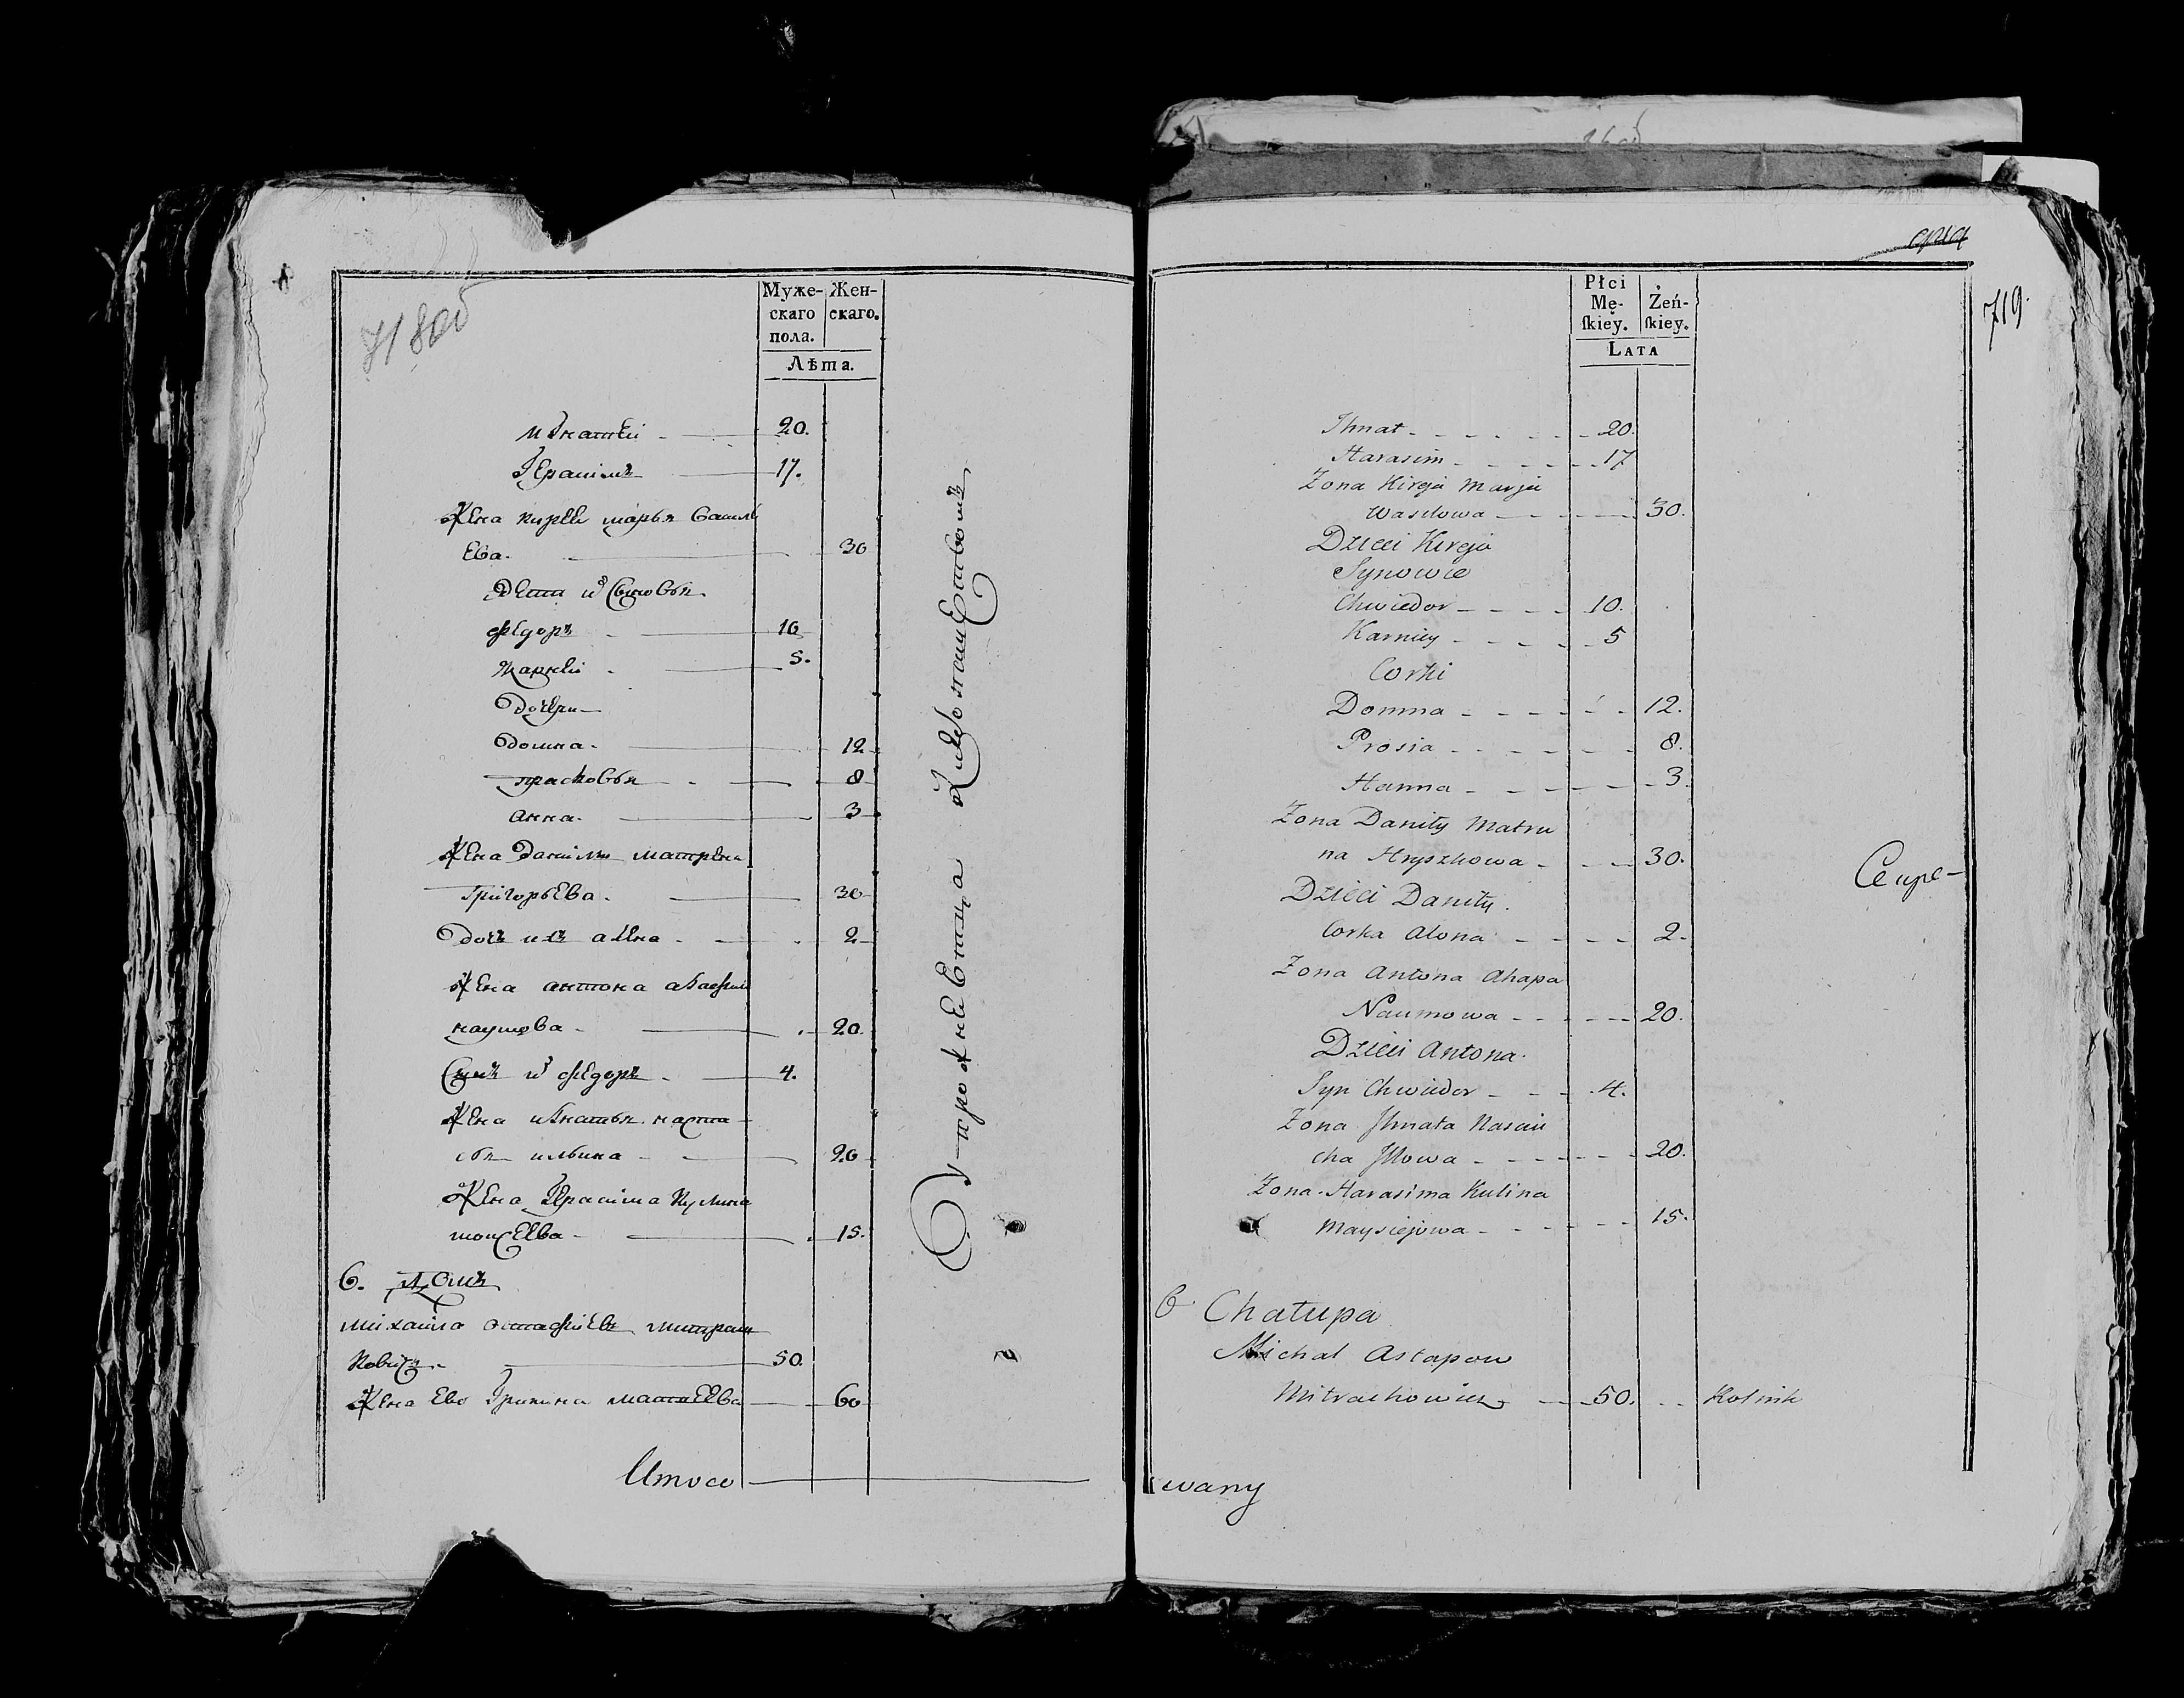 718об
Муже-
скаго
пола.
Жен-
скаго.
Лѣта.
Игнатеи 20.
Герасимъ 17.
Жена Кирея Марья Василь
ева. 30
Дети и Сыновья
Федоръ 10
Карнеи 5.
Дочери
Домна. 12
Прасковья 8
Анна. 3
Жена Данилы Матрена
Григорьева. 30
Дочь ихъ Алена 2
Жена Антона Агафия
Наумова 20.
Сынъ и Федоръ 4.
Жена Игнатья Наста
сья Ильина 20
Жена Герасима Кулина
Моисеева 15.
6. Домъ
Михаила Остафиевъ Митраш
ковичъ 50.
Жена Ево Грипина Матвеева 60
Итого
719.
Płci
Mę-
ſkiey.
Żeń-
ſkiey.
LATA
Ihnat 20.
Harasim 17
Zona Kireja Marja
Wasilowa 30.
Dzieci Kireja
Synowie
Chwiedor 10.
Karniey 5
Corki
Domna 12.
Prosia 8.
Hanna 3.
Zona Daniły Matru
na Hryszkowa 30.
Dzieci Daniły.
Corka Alona 2.
Zona Antona Ahapa
Naumowa 20.
Dzieci Antona.
Syn Chwiedor 4.
Zona Ihnata Nasciu
cha Illowa 20.
Zona Harasima Kulina
Maysiejowa 15.
6 Chałupa
Michal Astapow
Mitrachowicz 50. Rolnik